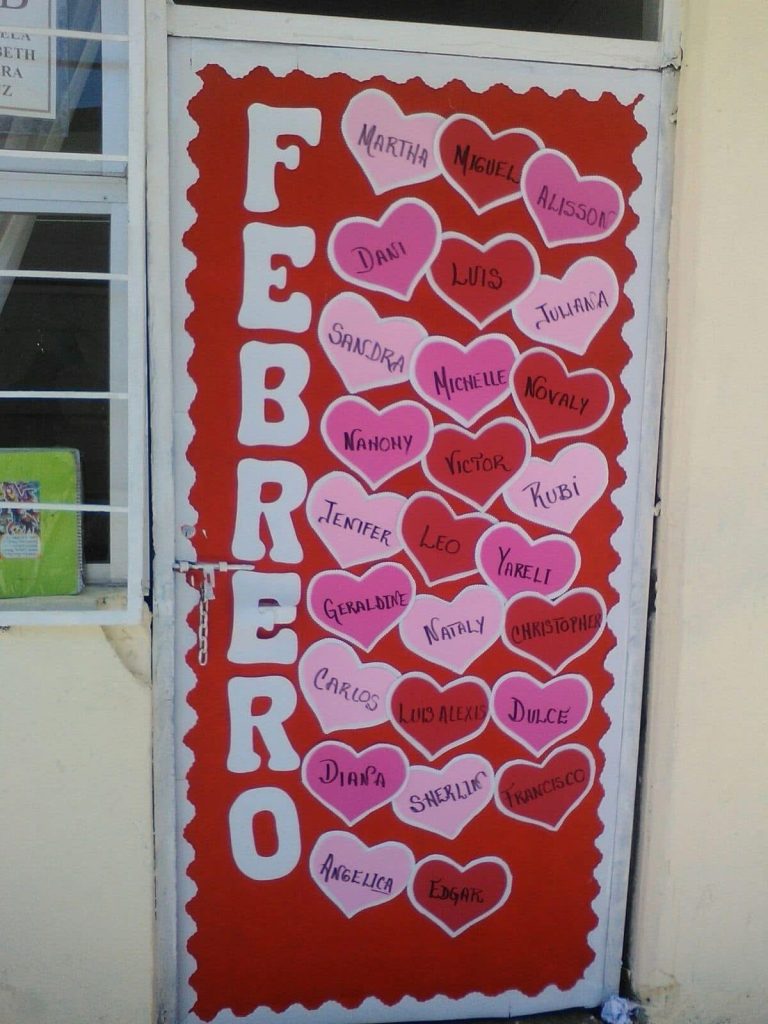 ELA
BETH
RA
Z
FEBRERO
MARTHA
MIGUEL
ALISSON
DANI
LUIS
JULIANA
SANDRA
MICHELLE
NOVALY
NAHOMY
VICTOR
RUBI
JENIFER
LEO
YARELI
GERALDINE
NATALY
CHRISTOPHER
CARLOS
LUIS ALEXIS
DULCE
DIANA
SHERLIN
FRANCISCO
ANGELICA
EDGAR